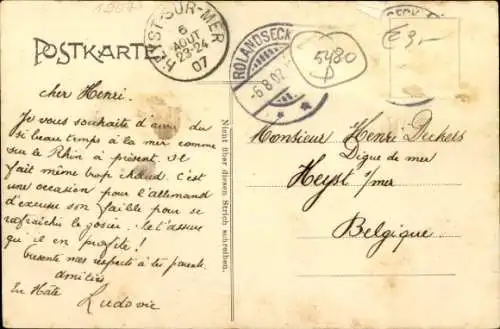 1907
POSTKARTE
HEYST-SUR-MER
6
AOUT
23-24
07
ROLANDSECK
-6.8.07
5480
D
€3,-
cher Henri.
Je vous souhaite d'avoir du
si beau temps à la mer comme
sur le Rhin à présent. Il
fait même trop chaud. C'est
une occasion pour l'allemand
d'excuse son faible pour se
rafraîchir le gosier. Je t'assure
qu'il en profite!
Présente mes respects à tes parents.
Amitiés
En Hâte
Ludovic
Nicht über diesen Strich schreiben.
Monsieur Henri Deckers
Digue de mer
Heyst s/mer
Belgique.